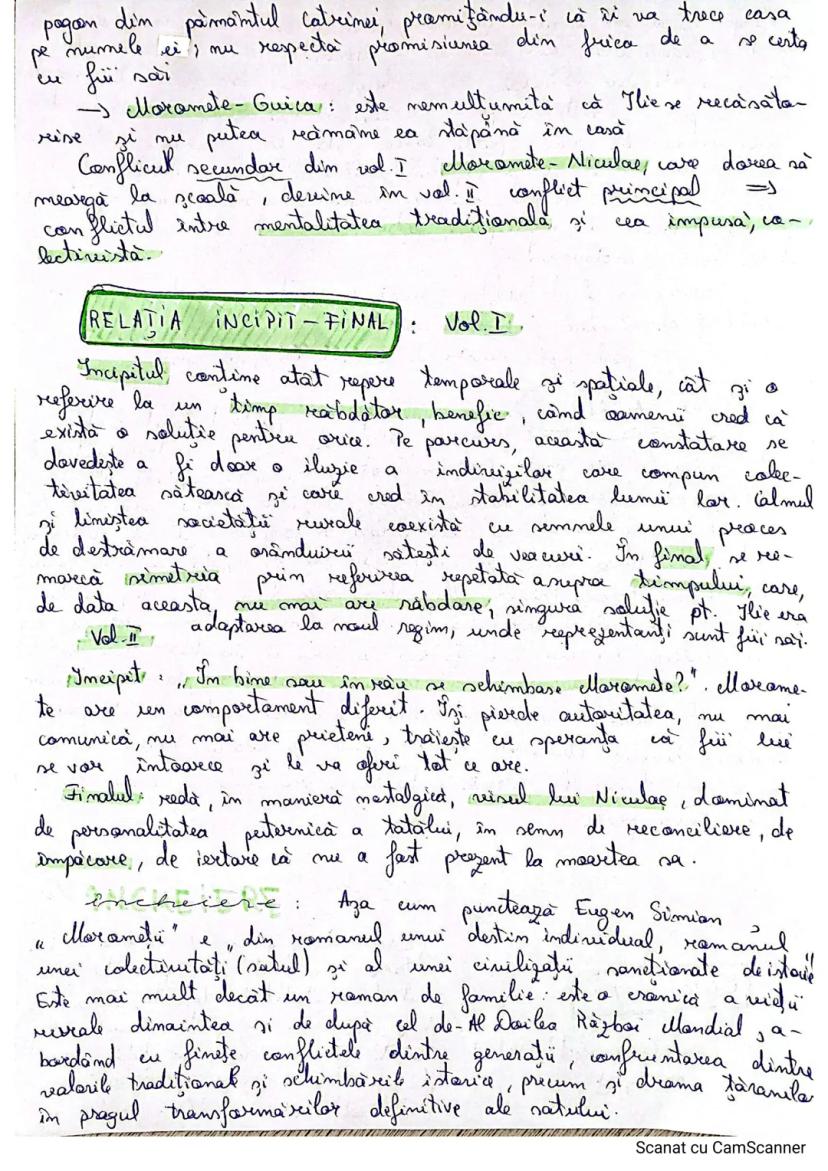 pogon din pământul Catrinei, promițându-i că îi va trece casa
pe numele ei; nu respectă promisiunea din frica de a se certa
cu fiii săi
→ Moromete-Guica: este nemulțumită că Ilie se recăsăto-
rise și nu putea rămâne ea stăpână în casă
Conflicul secundar din vol. I Moromete-Niculae, care dorea să
meargă la școală, devine în vol. II conflict principal =>
conflictul între mentalitatea tradițională și cea impusă, co-
lectivistă.
RELAȚIA INCIPIT-FINAL: Vol. I
Incipitul conține atât repere temporale și spațiale, cât și o
referire la un timp răbdător, benefic, când oamenii cred că
există o soluție pentru orice. Pe parcurs, această constatare se
dovedește a fi doar o iluzie a indivizilor care compun colec-
tivitatea sătească și care cred în stabilitatea lumii lor. Calmul
și liniștea societății rurale coexistă cu semnele unui proces
de destrămare a orânduirii sătești de veacuri. În final, se re-
marcă simetria prin referirea repetată asupra timpului, care,
de data aceasta, nu mai are răbdare, singura soluție pt. Ilie era
adaptarea la noul regim, unde reprezentanți sunt fiii săi.
Vol. II
Incipit: „În bine sau în rău se schimbase Moromete?". Morome-
te are un comportament diferit. Își pierde autoritatea, nu mai
comunică, nu mai are prieteni, trăiește cu speranța că fiii lui
se vor întoarce și le va oferi tot ce are.
Finalul: redă, în manieră nostalgică, visul lui Niculae, dominat
de personalitatea puternică a tatălui, în semn de reconciliere, de
împăcare, de iertare că nu a fost prezent la moartea sa.
încheiere: Așa cum punctează Eugen Simion
„Moromeții" e „din romanul unui destin individual, romanul
unei colectivități (satul) și al unei civilizații sancționate de istorie"
Este mai mult decât un roman de familie: este o cronică a vieții
rurale dinaintea și de după cel de-Al Doilea Război Mondial, a-
bordând cu finețe conflictele dintre generații, confruntarea dintre
valorile tradițional și schimbările istorice, precum și drama țăranilor
în pragul transformărilor definitive ale satului.
Scanat cu CamScanner